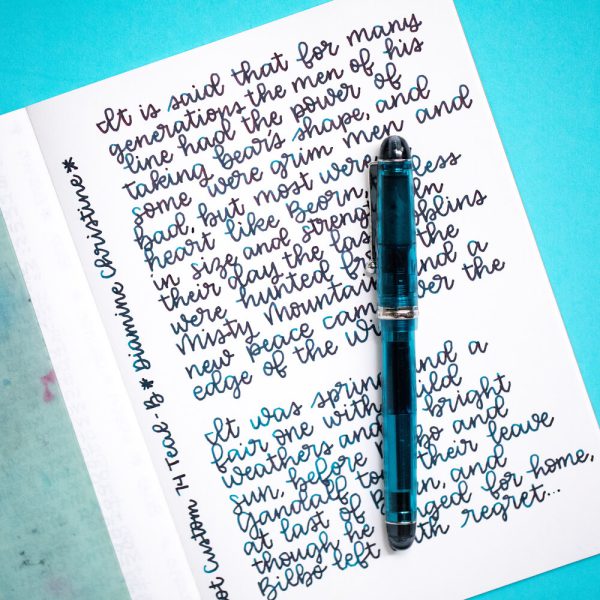 It is said that for many
generations the men of his
line had the power of
taking bear's shape, and
some were grim men and
bad, but most were
heart like Beorn, less
in size and strength in
their day the last goblins
were hunted from the
Misty Mountains and a
new peace came over the
edge of the wi
It was spring and a
fair one with mild
weathers and bright
sun, before Bilbo and
Gandalf took their leave
at last of Beorn, and
though he longed for home,
Bilbo left with regret...
ot Custom 74 Teal-B * Diamine Christine *